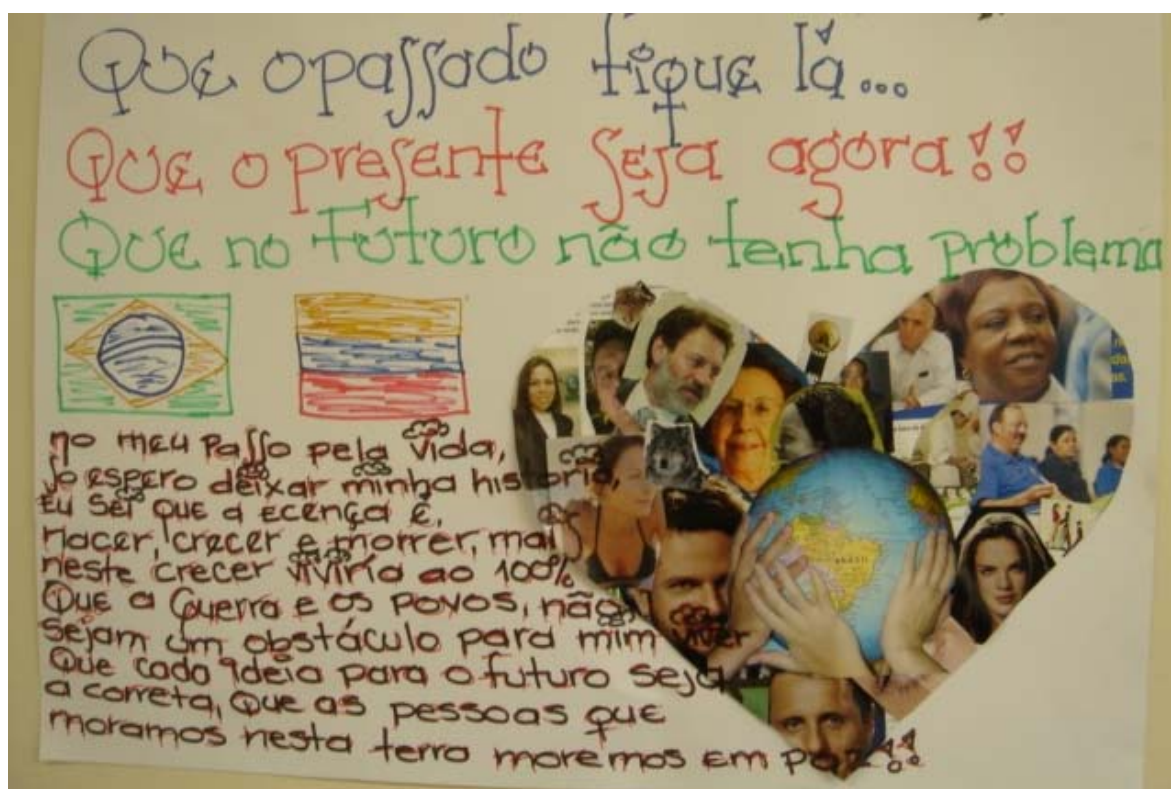 Que o passado fique lá...
Que o presente seja agora!!
Que no Futuro não tenha problema
no meu passo pela vida,
Jo espero deixar minha historia,
Eu sei que a ecença é,
nacer, crecer e morrer, mais
neste crecer viviria ao 100%
Que a Guerra e os povos, não
sejam um obstáculo para mim viver
Que cada ideia para o futuro seja
a correta, Que as pessoas que
moramos nesta terra moremos em paz!!
BRASIL